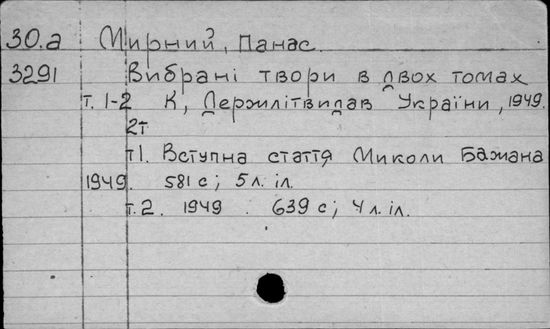 30.а Мирний, Панас.
3291 Вибрані твори в двох томах
т. 1-2 К, Держлітвидав України, 1949.
2т
т1. Вступна стаття Миколи Бажана
1949. 581 с; 5 л. іл.
т.2. 1949. 639 с; 4 л. іл.